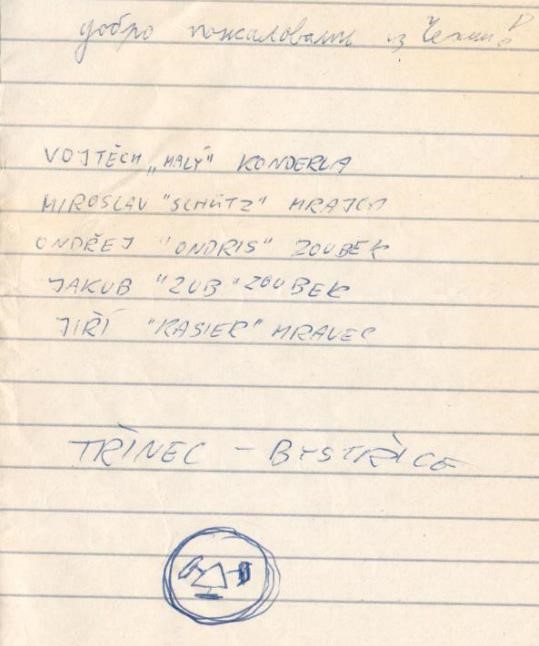 добро пожаловать из Чехии
VOJTĚCH „MALÝ" KONDERLA
MIROSLAV "SCHÜTZ"
ONDŘEJ "ONDRIS" ZOUBEK
JAKUB "ZUB" ZOUBEK
JIŘÍ "KASIER" MRAVEC
TŘINEC - BYSTŘICE